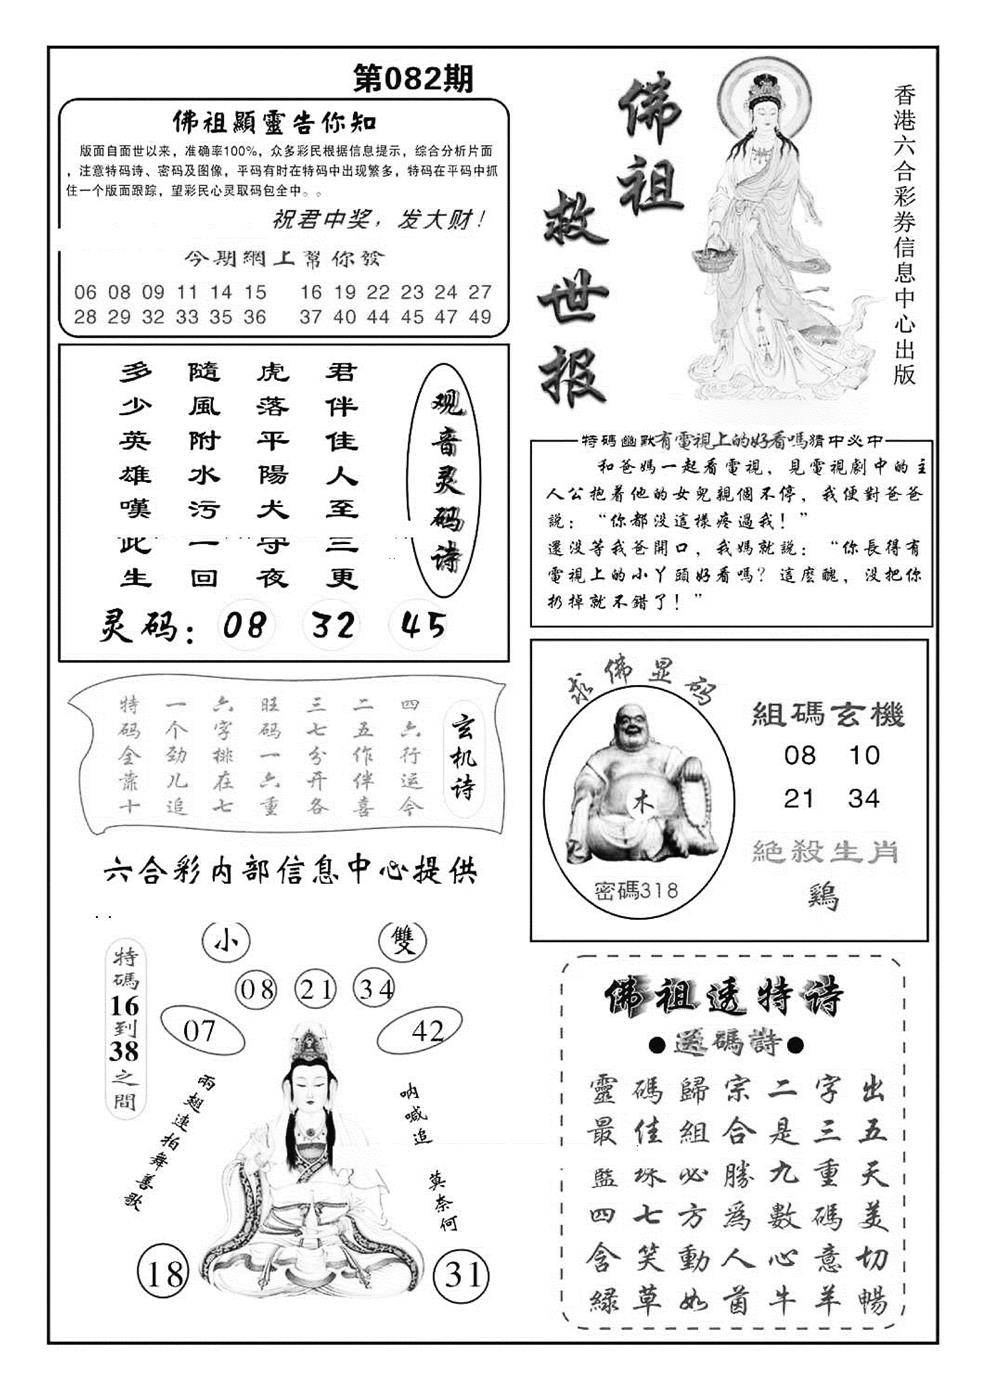 第082期
佛祖顯靈告你知
版面自面世以来，准确率100%，众多彩民根据信息提示，综合分析片面
，注意特码诗、密码及图像，平码有时在特码中出现繁多，特码在平码中抓
住一个版面跟踪，望彩民心灵取码包全中。。
祝君中奖，发大财！
今期網上幫你發
06 08 09 11 14 15 16 19 22 23 24 27
28 29 32 33 35 36 37 40 44 45 47 49
佛祖
救世报
香港六合彩券信息中心出版
观音灵码诗
君伴佳人至三更
虎落平陽犬守夜
隨風附水污一回
多少英雄嘆此生
灵码：08 32 45
特碼幽默有電視上的好看嗎猜中必中
和爸媽一起看電視，見電視劇中的主
人公抱着他的女兒親個不停，我便對爸爸
説：“你都没這樣疼過我！”
還没等我爸開口，我媽就説：“你長得有
電視上的小丫頭好看嗎？這麽醜，没把你
扔掉就不錯了！”
玄机诗
四六行运今
二五作伴喜
三七分开各
旺码一六重
六字排在七
一个劲儿追
特码全靠十
求佛显码
木
密碼318
組碼玄機
08 10
21 34
絕殺生肖
鷄
六合彩内部信息中心提供
小 雙
08 21 34
07 42
特碼16到38之間
兩翅連拍舞善歌
呐喊追 莫奈何
18 31
佛祖透特诗
●送碼詩●
靈碼歸宗二字出
最佳組合是三五
監珠必勝九重天
四七方為數碼美
含笑動人心意切
緑草如茵牛羊暢